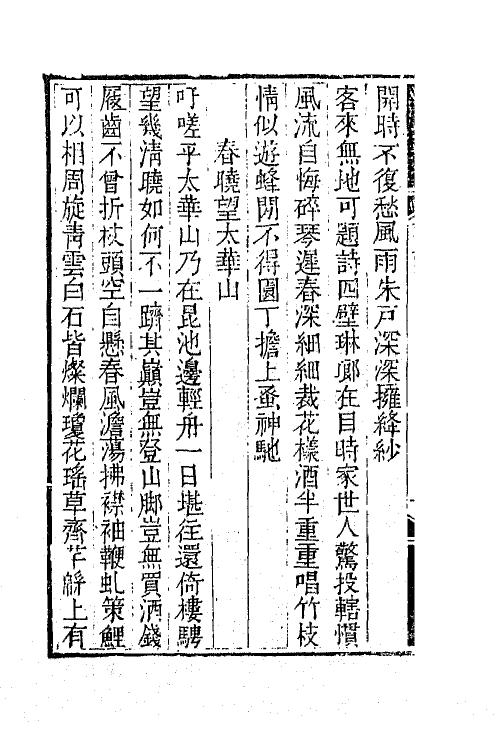 開時不復愁風雨朱戸深深擁絳紗
客來無地可題詩四壁琳瑯在目時家世人驚投轄慣
風流自悔碎琴遲春深細細裁花樣酒半重重唱竹枝
情似遊蜂閉不得園丁擔上蚤神馳
春曉望太華山
吁嗟乎太華山乃在昆池邊輕舟一日堪往還倚樓騁
望幾清曉如何不一躋其巔豈無登山脚豈無買酒錢
屐齒不曾折杖頭空自懸春風澹蕩拂襟袖鞭虬策鯉
可以相周旋青雲白石皆燦爛瓊花瑤草齊芊緜上有